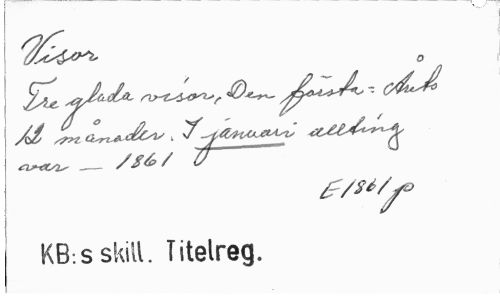 Visor
Tre glada visor, Den första = Årets
12 månader. I januari allting
var — 1861
E1861p
KB:s skill. Titelreg.